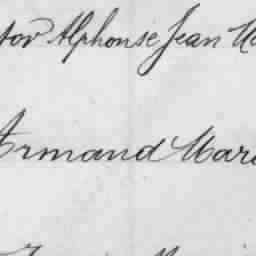 tor Alphonse Jean
Armand Mari